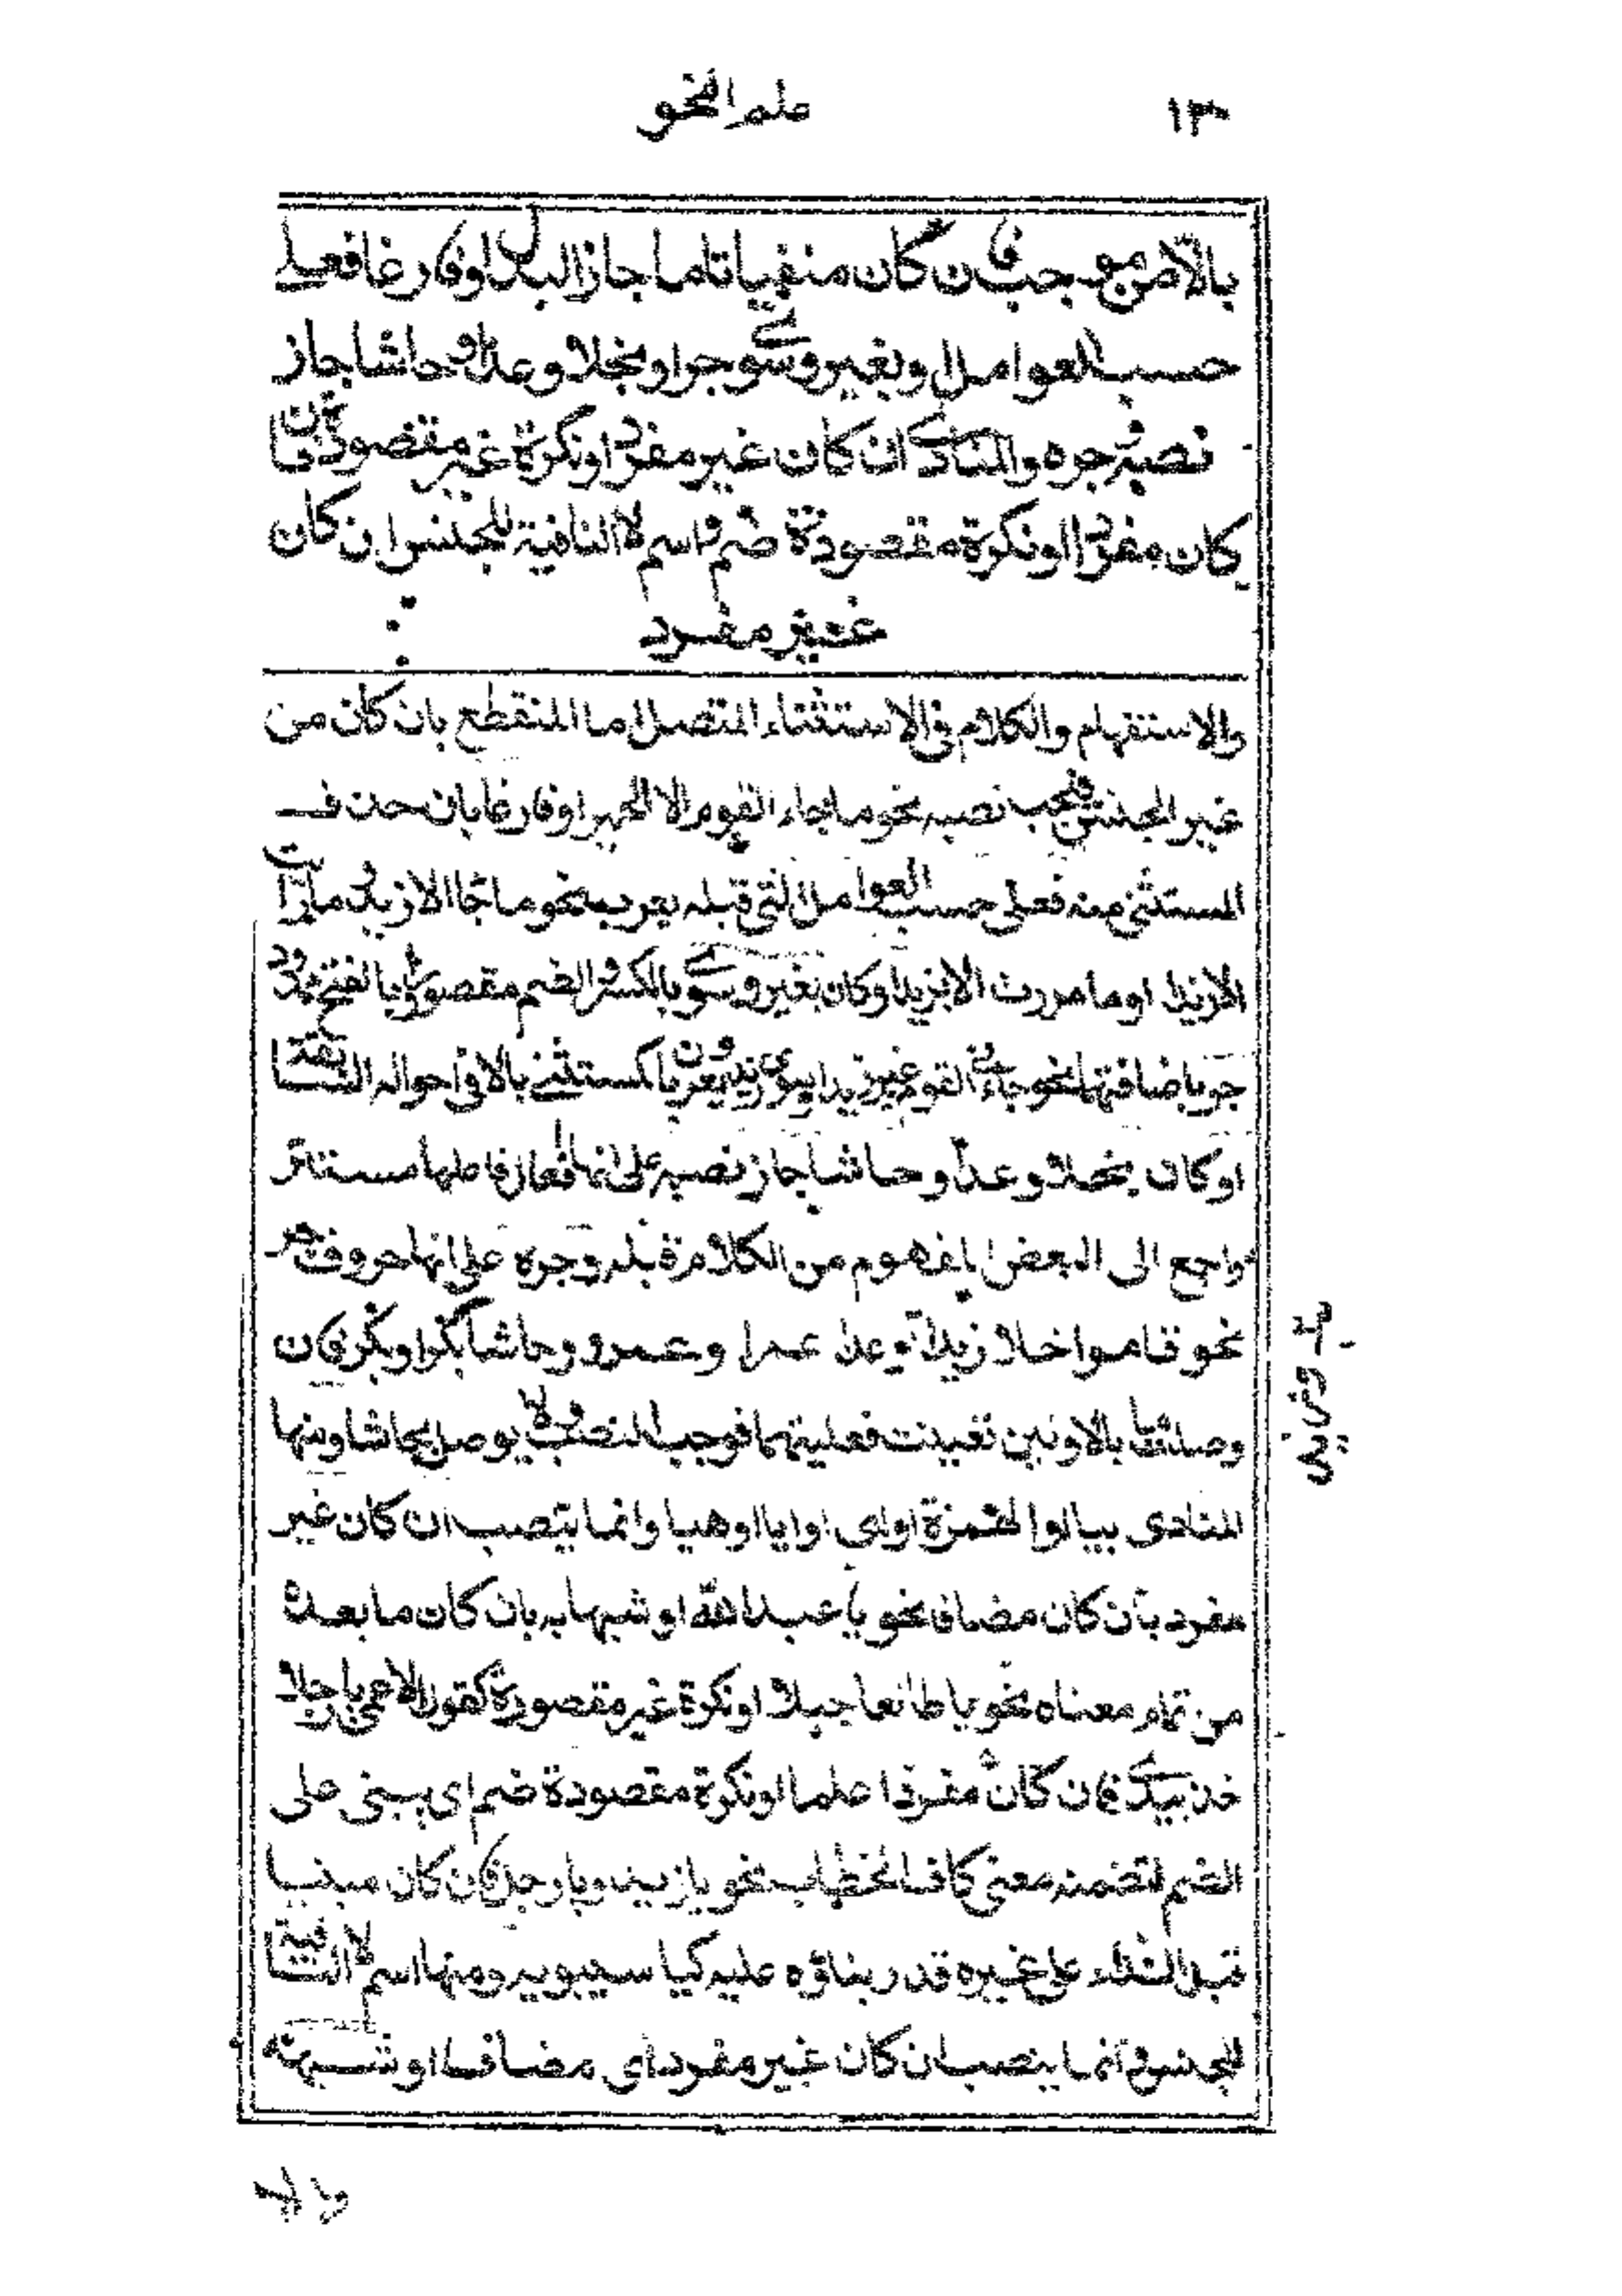 ١٣٠
علم النحو
بالا من موجب فان كان منفيا تاما جاز البدل او فارغا فعلى
حسب العوامل او بغير وسوى جر او بخلا وعدا وحاشا جاز
نصبه وجره والمنادى ان كان غير مفرد او نكرة غير مقصودة فان
كان مفردا او نكرة مقصودة ضم واسم لا النافية للجنس ان كان
غير مفرد
والاستفهام والكلام فى الاستثناء المتصل اما المنقطع بان كان من
غير الجنس فيجب نصبه نحو ما جاء القوم الا الحمير او فارغا بان حذف
المستثنى منه فعلى حسب العوامل التى قبله يعرب نحو ما جاء الا زيد وما رأيت
الا زيدا او ما مررت الا بزيد او كان بغير وسوى بالكسر والضم مقصورا وبالفتح ممدودا
جر باضافتهما نحو جاءنى القوم غير زيد او سوى زيد ويعربان كمستثنى بالا فى احواله السابقة
او كان بخلا وعدا وحاشا جاز نصبه على انها افعال فاعلها مستتر
راجع الى البعض المفهوم من الكلام قبله وجره على انها حروف جر
نحو قاموا خلا زيدا وعدا عمرا وعمرو وحاشا بكرا وبكر فان
وصلت ما بالاوليين تعينت فعليتهما فوجب النصب ولا يوصل بحاشا ومنها
المنادى بيا او الهمزة او اى او ايا او هيا وانما ينصب ان كان غير
مفرد بان كان مضافا نحو يا عبد الله او شبيها به بان كان ما بعده
من تمام معناه نحو يا طالعا جبلا او نكرة غير مقصودة كقول الاعمى يا رجلا
خذ بيدى فان كان مفردا علما او نكرة مقصودة ضم اى يبنى على
الضم لتضمنه معنى كاف الخطاب نحو يا زيد ويا رجل فان كان مبنيا
قبل النداء على غيره قدر بناؤه عليه كيا سيبويه ومنها اسم لا النافية
للجنس وانما ينصب ان كان غير مفرد اى مضافا او شبهه